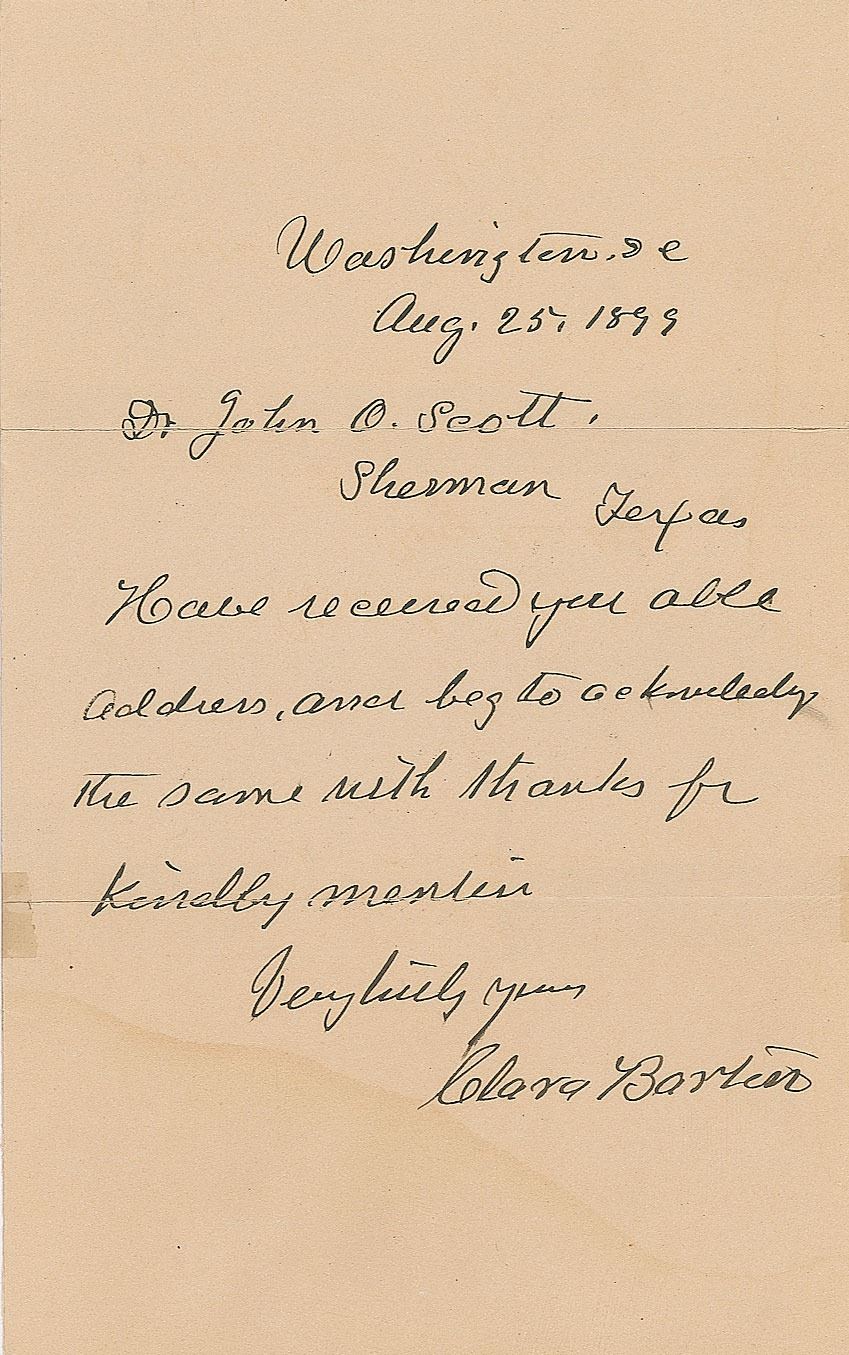 Washington. D C
Aug. 25, 1899
Dr John O. Scott.
Sherman Texas
Have received your able
address, and beg to acknowledg
the same with thanks for
kindly mention
Very truly yours
Clara Barton